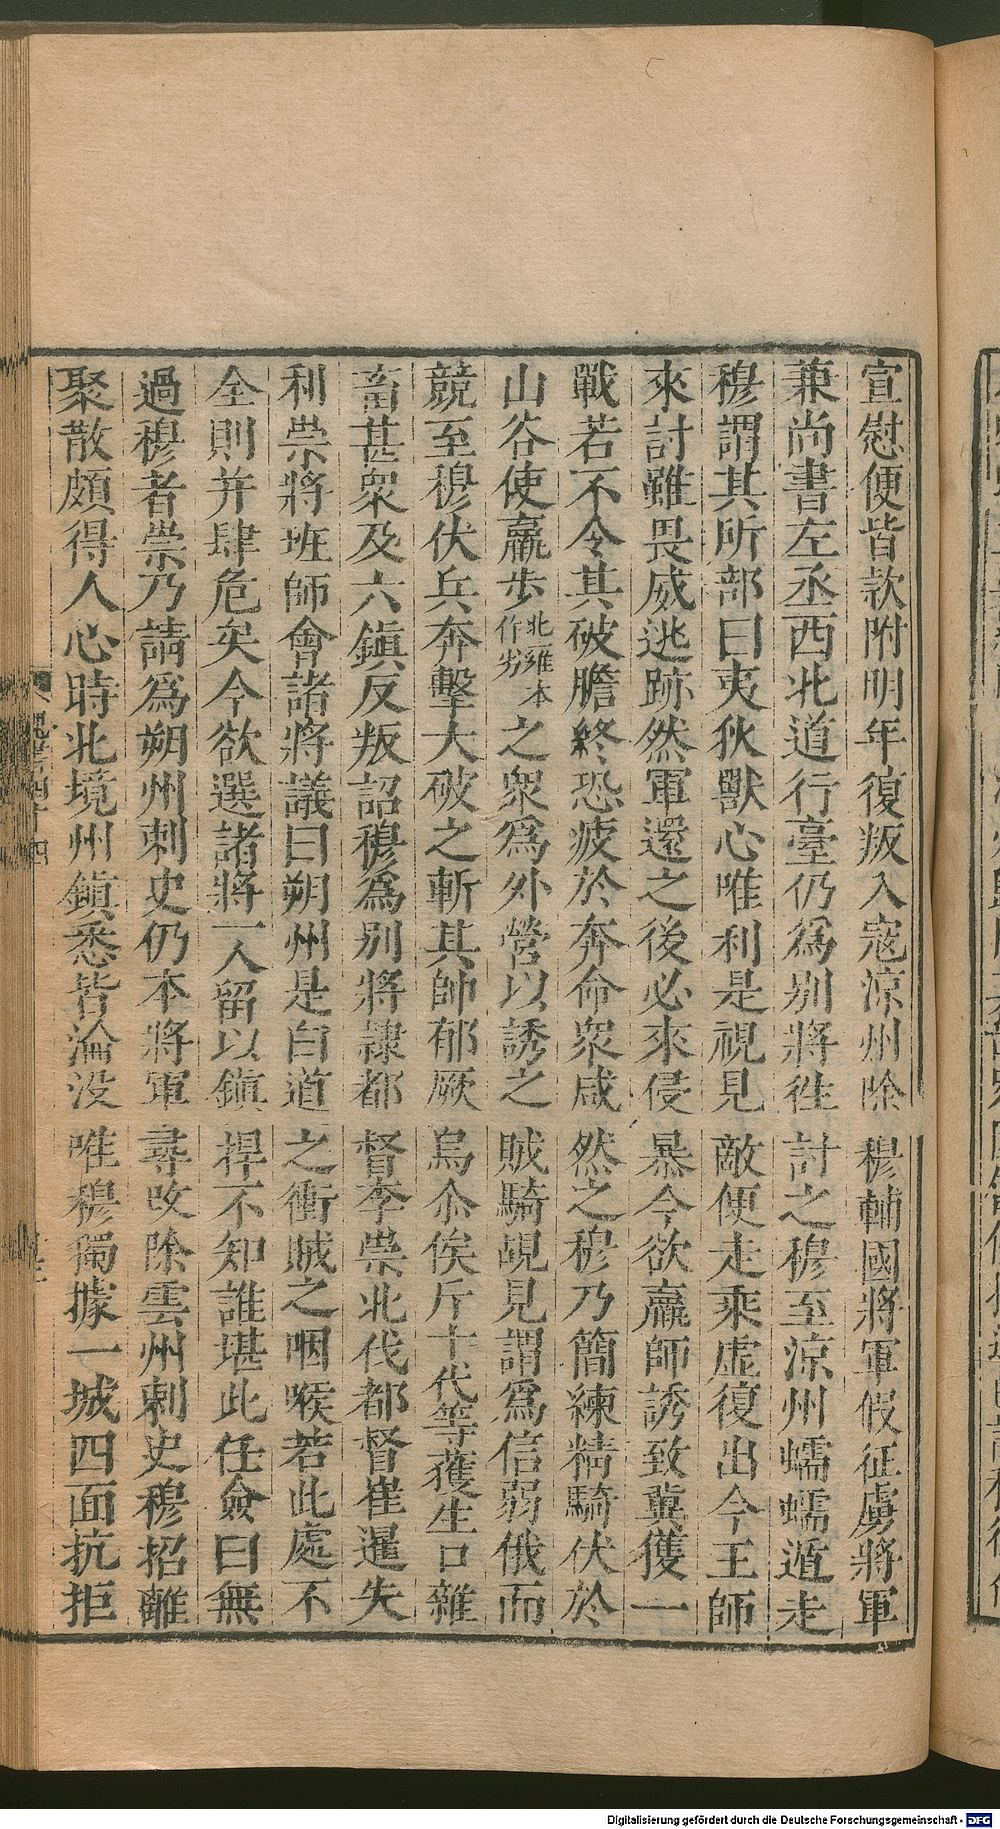 宣慰便皆款附明年復叛入寇涼州除穆輔國將軍假征虜將軍
兼尚書左丞西北道行臺仍爲别將往討之穆至涼州蠕蠕遁走
穆謂其所部曰夷狄獸心唯利是視見敵便走乘虚復出今王師
來討雖畏威逃跡然軍還之後必來侵暴今欲羸師誘致冀獲一
戰若不令其破膽終恐疲於奔命衆咸然之穆乃簡練精騎伏於
山谷使羸步北雍本作劣之衆爲外營以誘之賊騎覘見謂爲信弱俄而
競至穆伏兵奔擊大破之斬其帥郁厥烏尒俟斤十代等獲生口雜
畜甚衆及六鎮反叛詔穆爲别將隷都督李崇北伐都督崔暹失
利崇將班師會諸將議曰朔州是白道之衝賊之咽喉若此處不
全則并肆危矣今欲選諸將一人留以鎮捍不知誰堪此任僉曰無
過穆者崇乃請爲朔州刺史仍本將軍尋改除雲州刺史穆招離
聚散頗得人心時北境州鎮悉皆淪没唯穆獨據一城四面抗拒
Digitalisierung gefördert durch die Deutsche Forschungsgemeinschaft - DFG